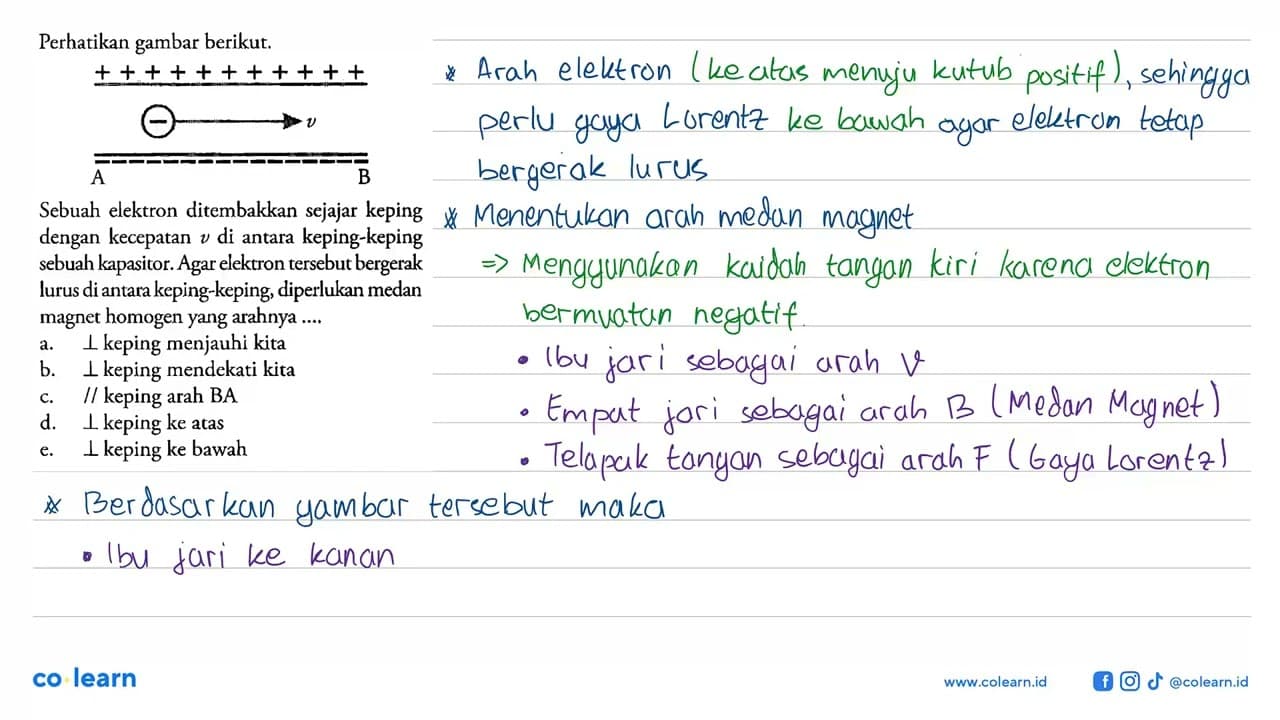 Perhatikan gambar berikut.
+ + + + + + + + + + +
− v
A B
Sebuah elektron ditembakkan sejajar keping
dengan kecepatan v di antara keping-keping
sebuah kapasitor. Agar elektron tersebut bergerak
lurus di antara keping-keping, diperlukan medan
magnet homogen yang arahnya ....
a. ⊥ keping menjauhi kita
b. ⊥ keping mendekati kita
c. // keping arah BA
d. ⊥ keping ke atas
e. ⊥ keping ke bawah
* Arah elektron (ke atas menuju kutub positif), sehingga
perlu gaya Lorentz ke bawah agar elektron tetap
bergerak lurus
* Menentukan arah medan magnet
=> Menggunakan kaidah tangan kiri karena elektron
bermuatan negatif.
• Ibu jari sebagai arah v
• Empat jari sebagai arah B (Medan Magnet)
• Telapak tangan sebagai arah F (Gaya Lorentz)
* Berdasarkan gambar tersebut maka
• Ibu jari ke kanan
co learn
www.colearn.id
@colearn.id